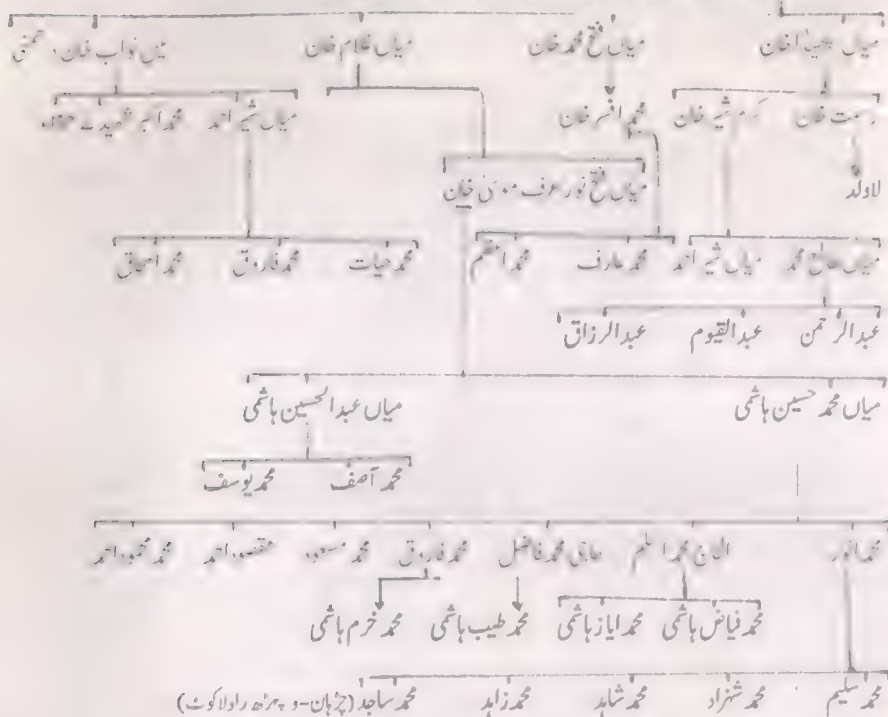 میاں خان میاں فتح محمد خان میاں غلام خان میں نواب خان
رحمت خان کرم شیر خان محمد افسر خان میاں شیر احمد محمد اکبر شہید
لاولد میاں فتح نور عرف موسیٰ خان
میاں صالح محمد میاں شیر احمد محمد عارف محمد اعظم محمد حیات محمد فاروق محمد اسحاق
عبدالرحمن عبدالقیوم عبدالرزاق
میاں محمد حسین ہاشمی میاں عبدالحسین ہاشمی
محمد آصف محمد یوسف
محمد انور الحاج محمد اسلم حاجی محمد فاضل محمد فاروق محمد مسعود مقصود احمد محمد محمود احمد
محمد فیاض ہاشمی محمد ایاز ہاشمی محمد طیب ہاشمی محمد خرم ہاشمی
محمد سلیم محمد شہزاد محمد شاہد محمد زاہد محمد ساجد (چڑہان-و راولاکوٹ)